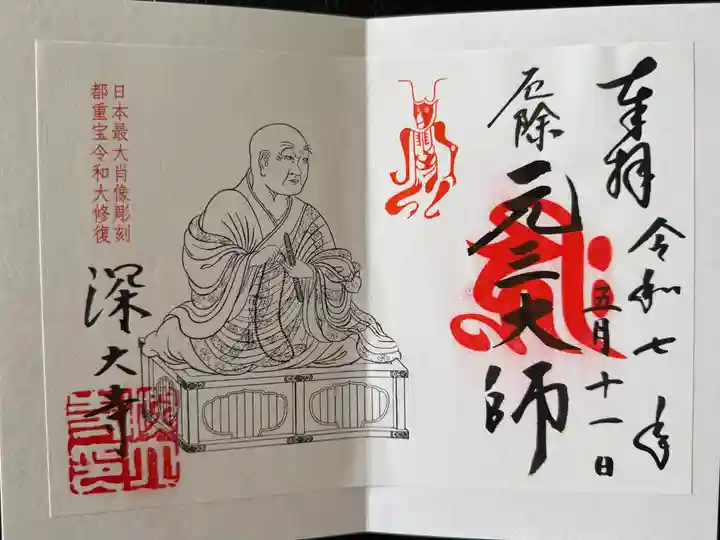 奉拝
令和七年
五月十一日
厄除
元三大師
日本最大肖像彫刻
都重宝令和大修復
深大寺